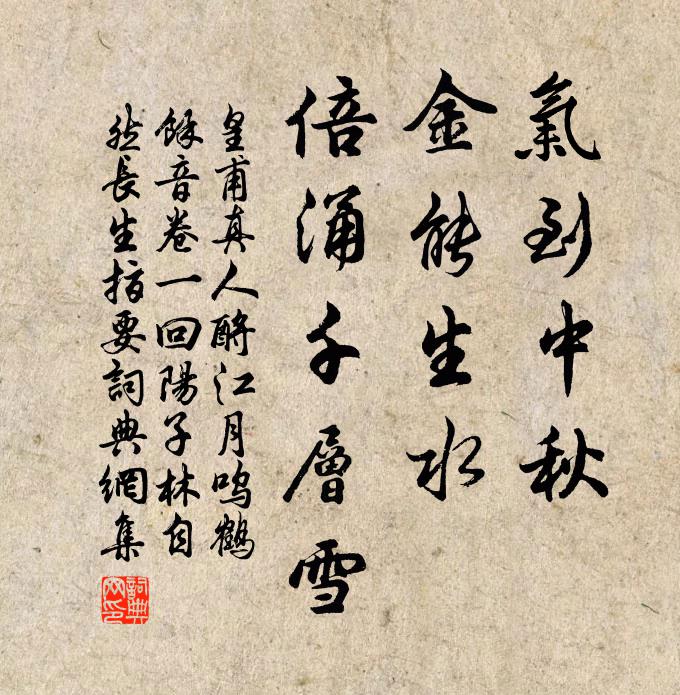 氣到中秋
金能生水
倍涌千層雪
皇甫真人酹江月鳴鶴
餘音卷一回陽子林自
然長生指要詞典網集
詞典
网印